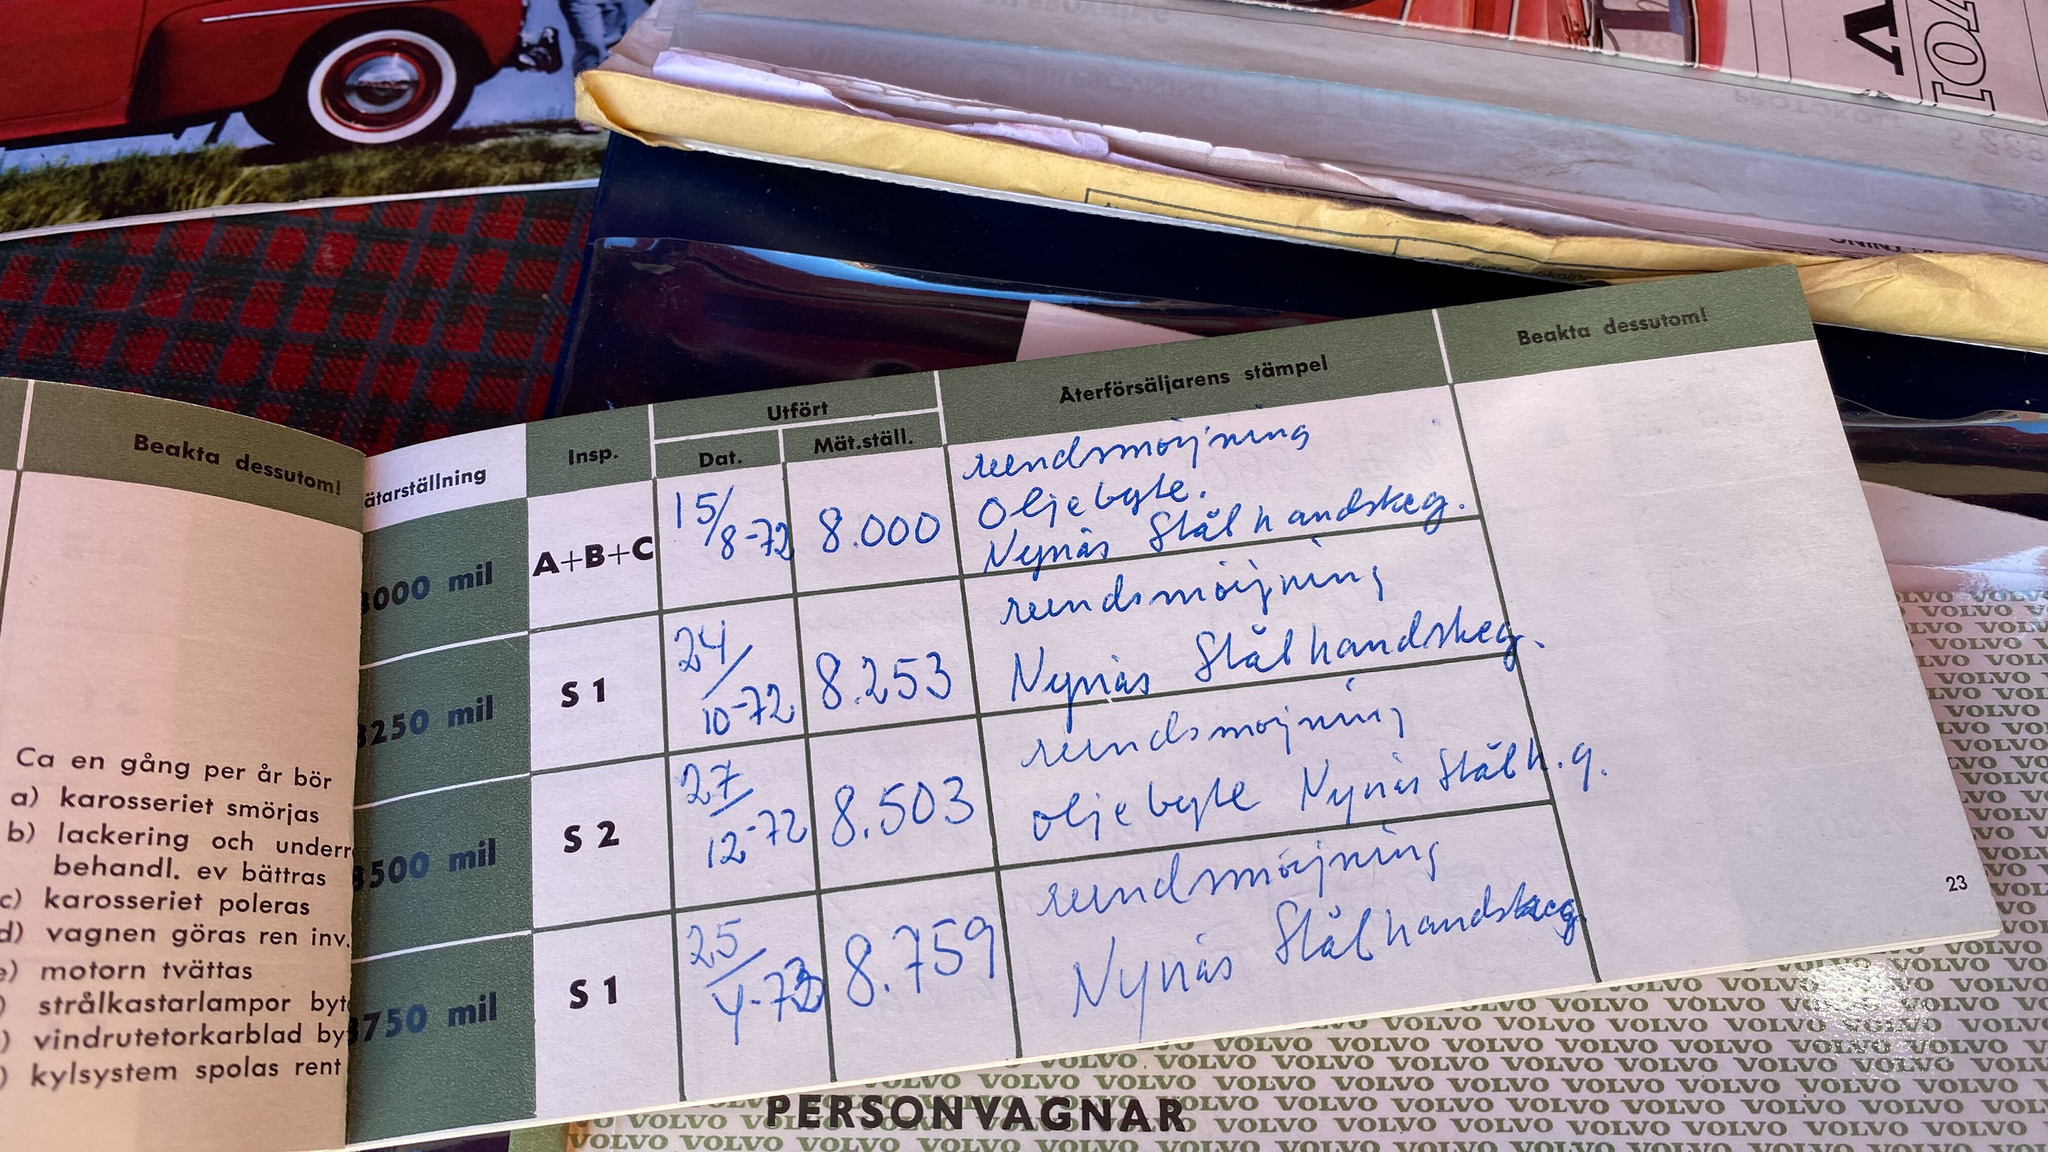 Beakta dessutom!
Ca en gång per år bör
a) karosseriet smörjas
b) lackering och underr
behandl. ev bättras
c) karosseriet poleras
d) vagnen göras ren inv.
e) motorn tvättas
) strålkastarlampor byt
) vindrutetorkarblad by
) kylsystem spolas rent
ätarställning Insp. Utfört Återförsäljarens stämpel Beakta dessutom!
Dat. Mät.ställ.
8000 mil A+B+C 15/8-72 8.000 rundsmörjning
oljebyte.
Nynäs Stålhandskeg.
8250 mil S 1 24/10-72 8.253 rundsmörjning
Nynäs Stålhandskeg.
8500 mil S 2 27/12-72 8.503 rundsmörjning
oljebyte Nynäs Stålh.g.
8750 mil S 1 25/4-73 8.759 rundsmörjning
Nynäs Stålhandskeg.
23
PERSONVAGNAR
VOLVO VOLVO VOLVO VOLVO VOLVO VOLVO VOLVO